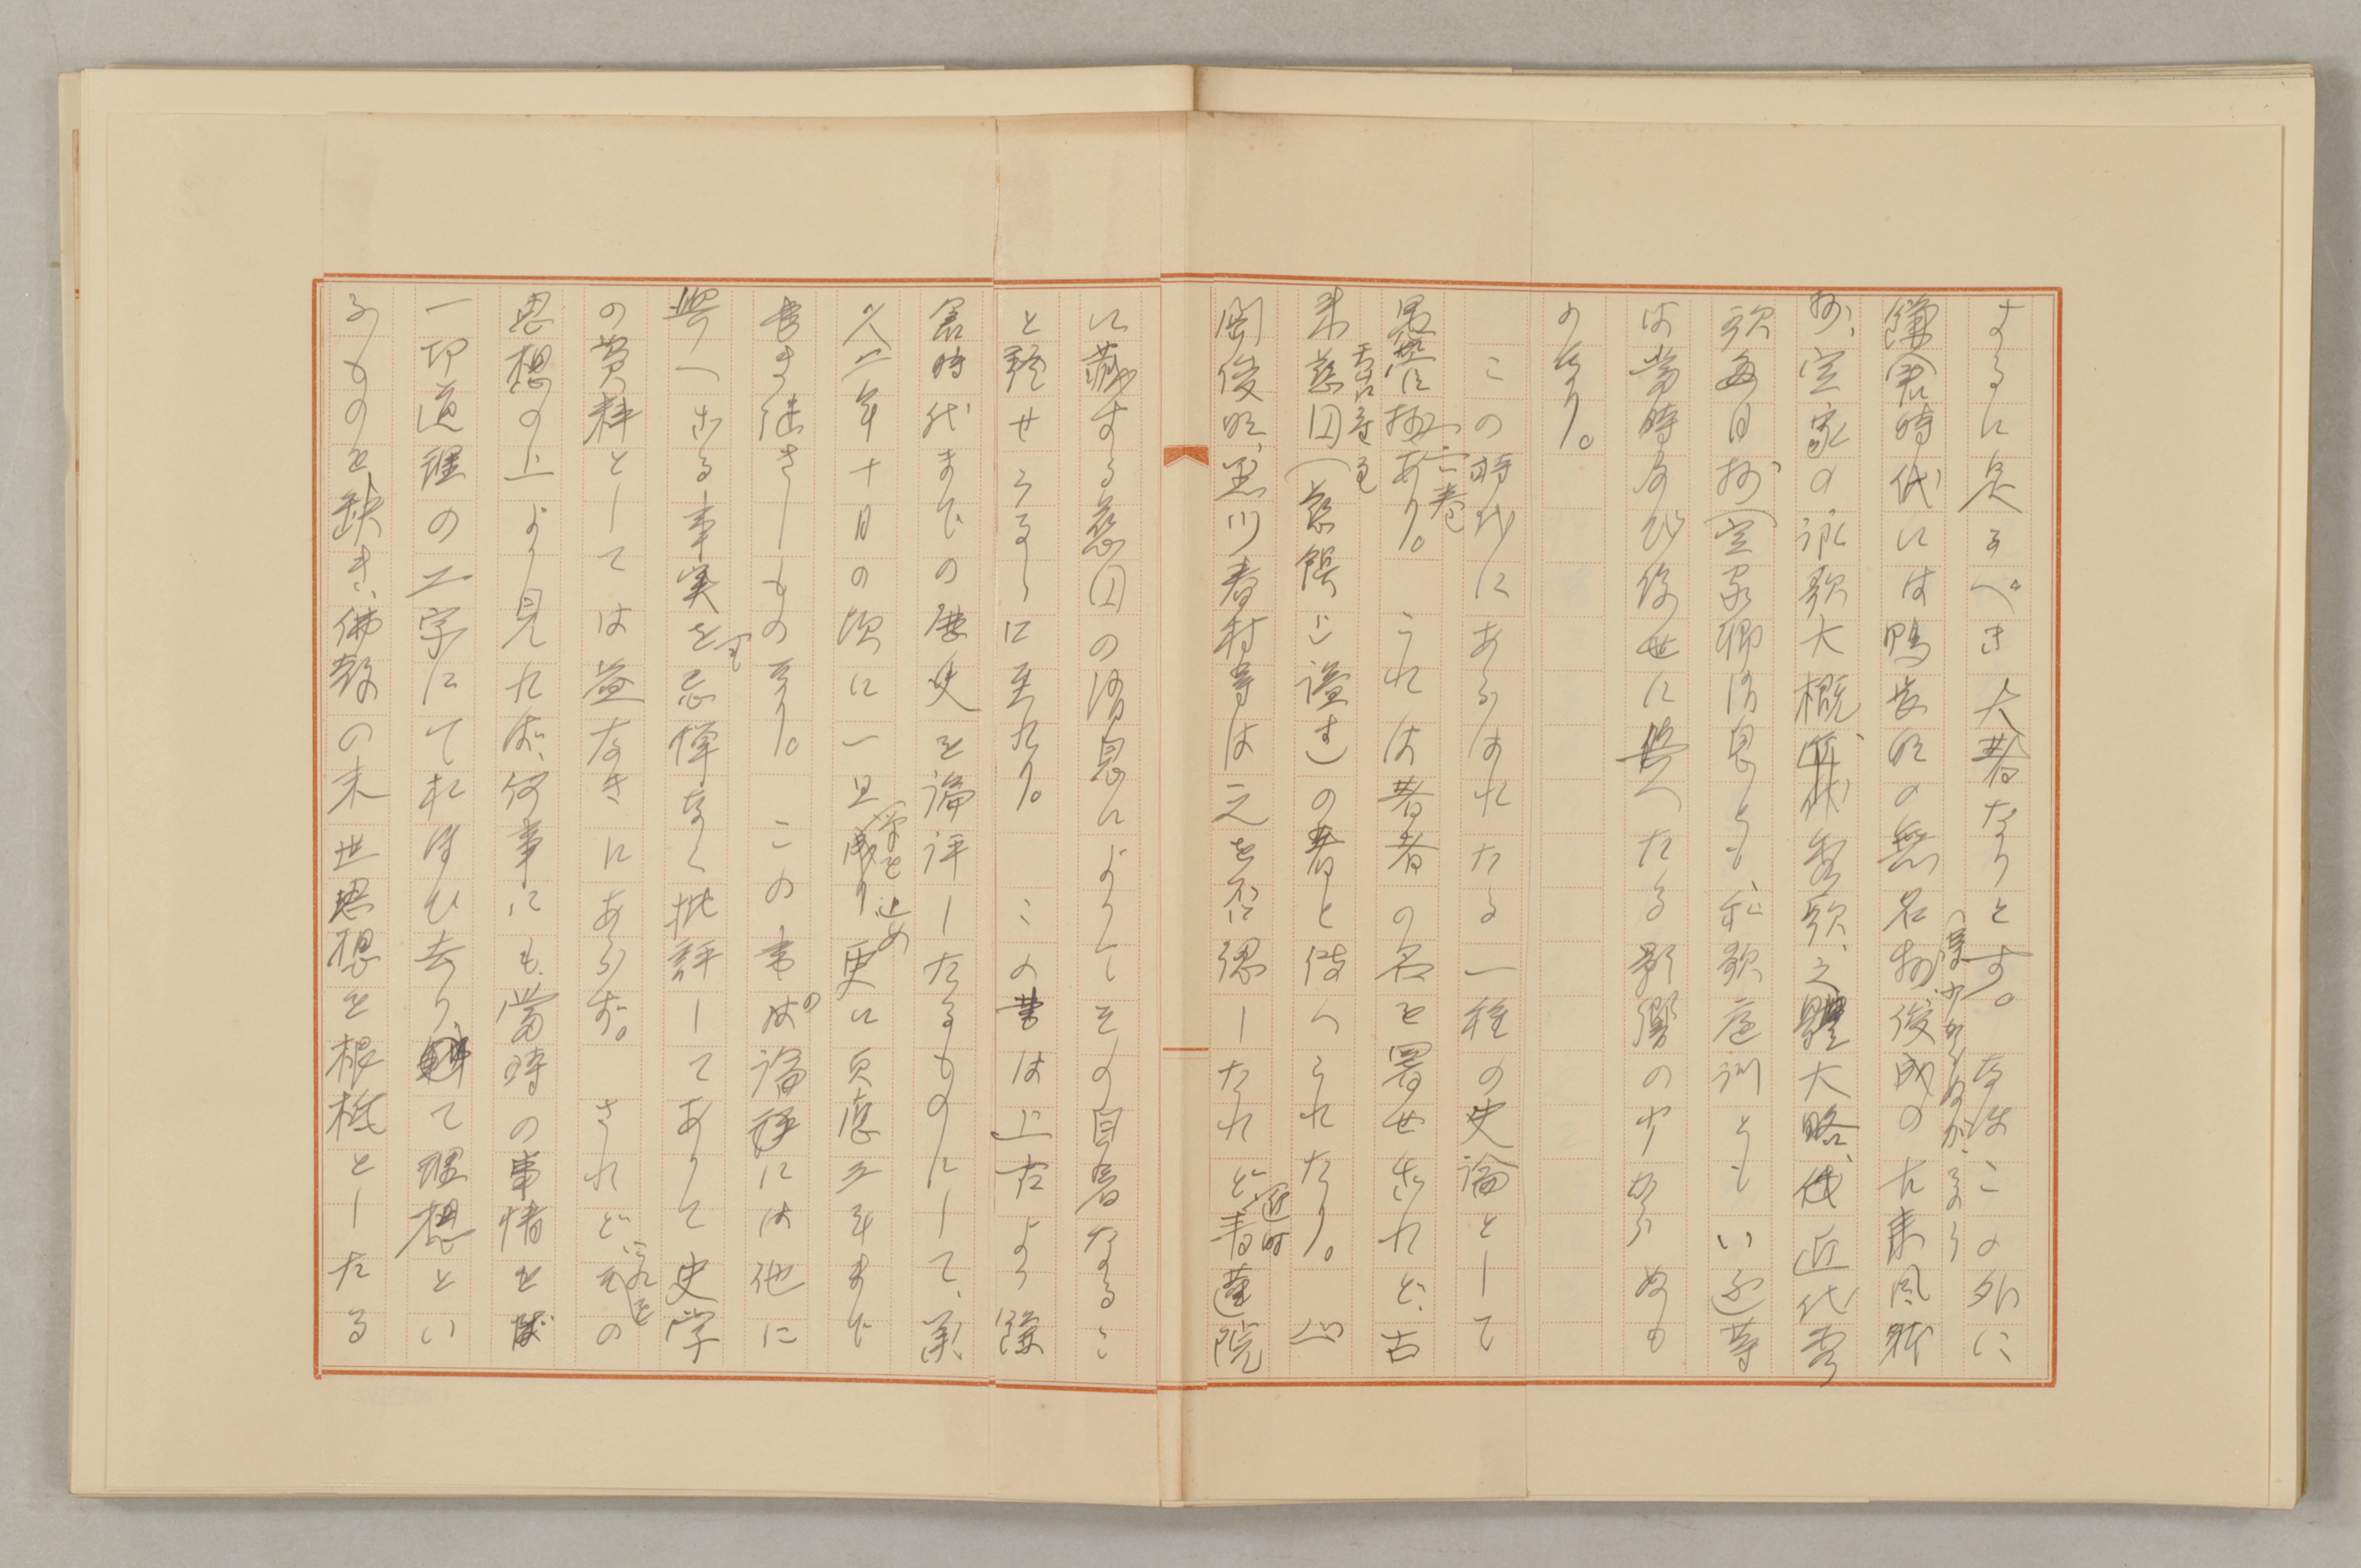 するに足るべき大著なりとす。なほこの外に
鎌倉時代には鴨長明の無名抄、俊成の古来風躰
撰少からぬが、まづ
抄、定家の詠歌大概、秀歌之體大略、近代秀
歌、毎月抄(定家卿消息とも和歌庭訓ともいふ)等
は當時及び後世に與へたる影響の少からぬも
のなり。
この時代にあらはれたる一種の史論として
愚管抄あり。これは著者の名を署せざれど、古
(六巻)
来慈円(慈鎮と諡す)の著と傳へられたり。
天台座主
岡俊明、黒川春村等は之を否認したれど、青蓮院
近時
に藏する慈円の消息によりてその自著なるこ
と證せらるゝに至れり。この書は上古より鎌
倉時代までの歴史を論評したるものにして、承
久二年十月の頃に一旦更に貞應二年まで
筆を止め
書き継ぎしものなり。この書の論評には他に
與へざる事実をも忌憚なく批評してありて史学
の資料としては益なきにあらず。されどこれを
思想の上より見れば、何事にも當時の事情を
一切道理の二字にておほひ去りて理想とい
ふものを缺き、佛教の末世思想を根柢としたる